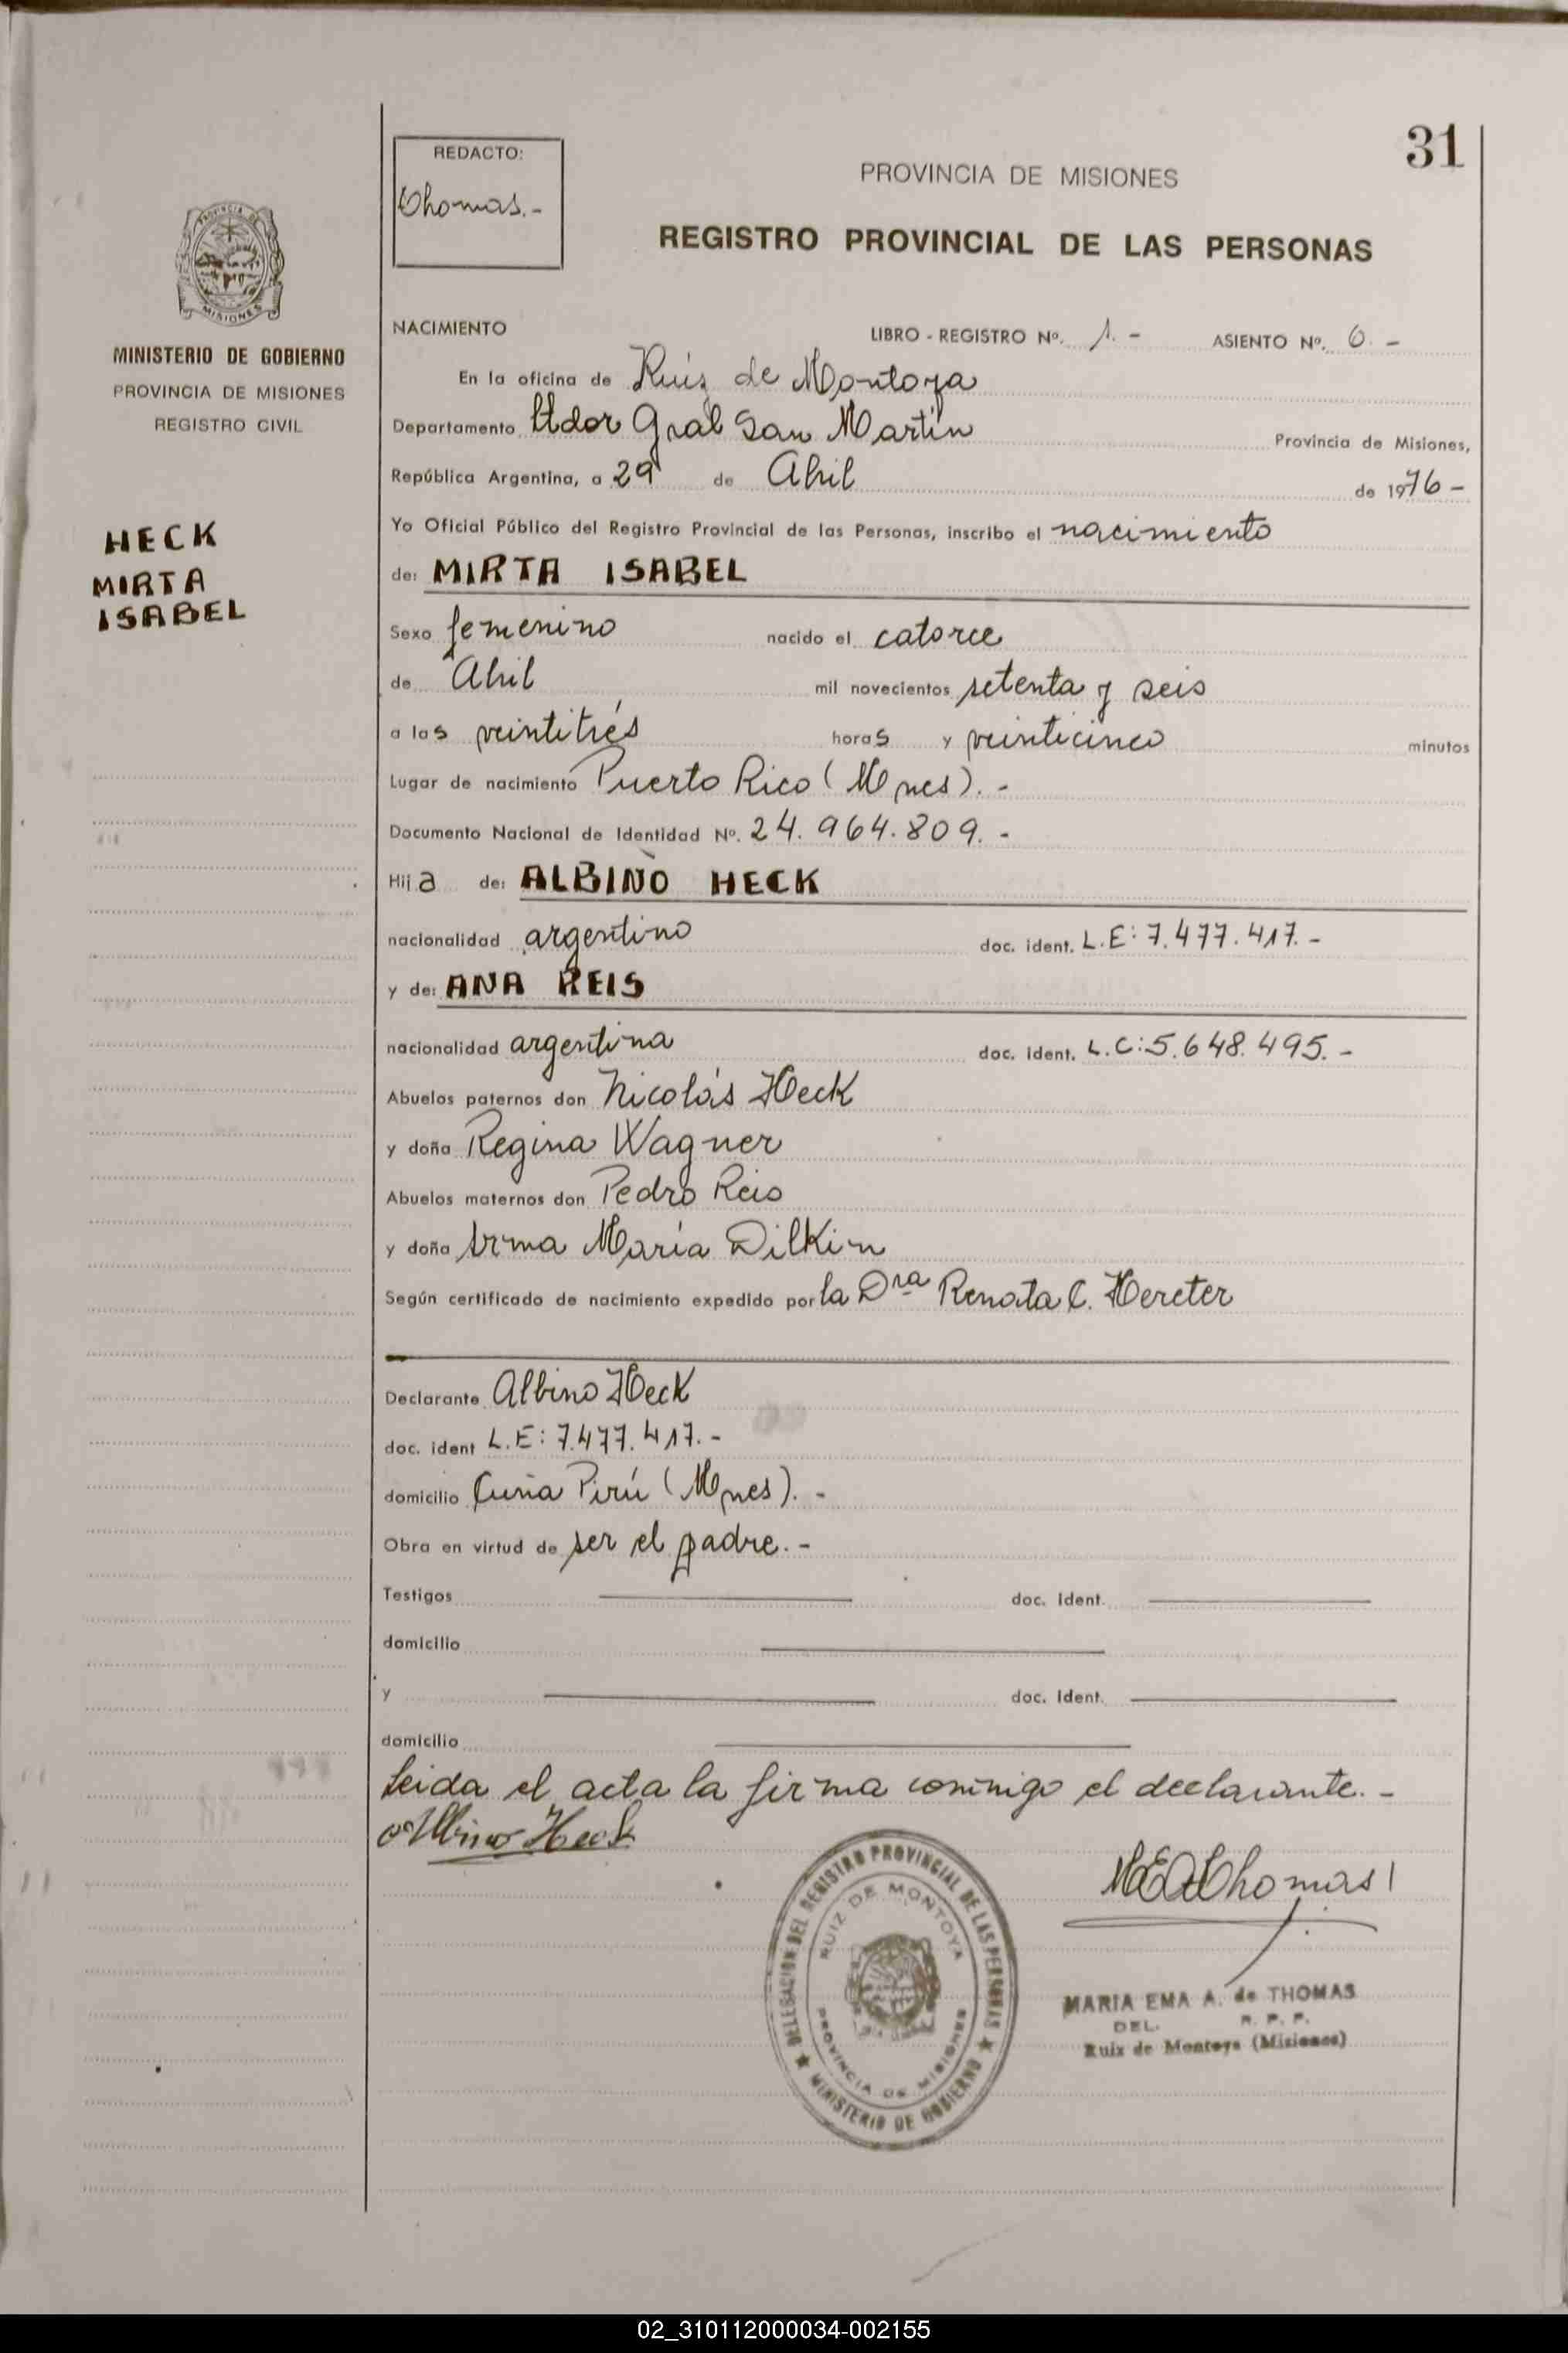 31
REDACTO:
Thomas.-
PROVINCIA DE MISIONES
REGISTRO PROVINCIAL DE LAS PERSONAS
PROVINCIA DE
MISIONES
MINISTERIO DE GOBIERNO
PROVINCIA DE MISIONES
REGISTRO CIVIL
HECK
MIRTA
ISABEL
NACIMIENTO LIBRO - REGISTRO Nº. 1.- ASIENTO Nº. 6.-
En la oficina de Ruiz de Montoya
Departamento Ltdor Gral San Martín Provincia de Misiones,
República Argentina, a 29 de Abril de 1976-
Yo Oficial Público del Registro Provincial de las Personas, inscribo el nacimiento
de: MIRTA ISABEL
Sexo femenino nacido el catorce
de Abril mil novecientos setenta y seis
a las veintitrés horas y veinticinco minutos
Lugar de nacimiento Puerto Rico (Mnes).-
Documento Nacional de Identidad Nº. 24.964.809.-
Hija de: ALBINO HECK
nacionalidad argentino doc. ident. L.E: 7.477.417.-
y de: ANA REIS
nacionalidad argentina doc. ident. L.C: 5.648.495.-
Abuelos paternos don Nicolás Heck
y doña Regina Wagner
Abuelos maternos don Pedro Reis
y doña Irma María Dilkin
Según certificado de nacimiento expedido por la Dra Renata C. Hereter
Declarante Albino Heck
doc. ident L.E: 7.477.417.-
domicilio Cuña Pirú (Mnes).-
Obra en virtud de ser el padre.-
Testigos doc. ident.
domicilio
y doc. ident.
domicilio
Leida el acta la firma conmigo el declarante.-
Albino Heck
MEAThomas
DELEGACION DEL REGISTRO PROVINCIAL DE LAS PERSONAS
RUIZ DE MONTOYA
PROVINCIA DE MISIONES
MINISTERIO DE GOBIERNO
MARIA EMA A. de THOMAS
DEL. R. P. P.
Ruiz de Montoya (Misiones)
02_310112000034-002155